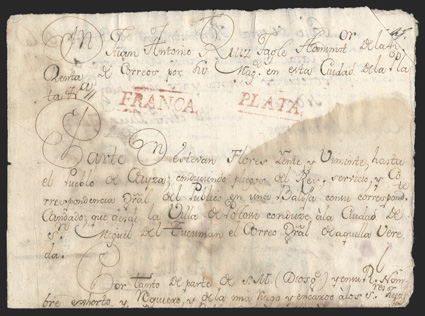 Juan Antonio Ruiz Tagle de la
Renta de Correos por Su Mag. en esta Ciudad de la
ta
FRANCA. PLATA.
Parte Dn Estevan Flores Tente y Viniente, hasta
el Pueblo de Cayza, conduciendo pliegos del Rey, servicio, y Co
rrespondencia Gral. del Publico en una Balija con su correspondte
Candado, que desde la Villa de Potosi conduze a la Ciudad de
Sn Miguel del Tucuman el Correo Gral. de aquella Vere
da.
Por tanto de parte de S. M. (Dios gue) y en su Rl Nom
bre exhorto, y requiero, y de la mia ruego y encargo a los Sres